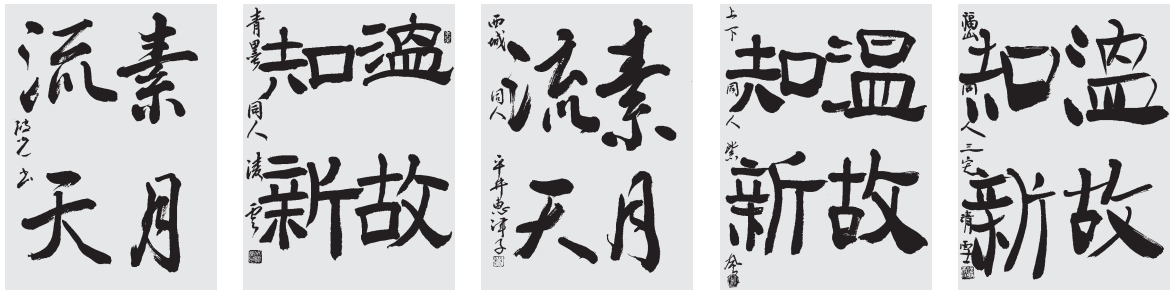 素月
流天
温故
知新
青墨 同人 凌雲
素月
流天
西城 同人 平井恵津子
温故
知新
上下 同人 紫
温故
知新
同人 三宅清雪